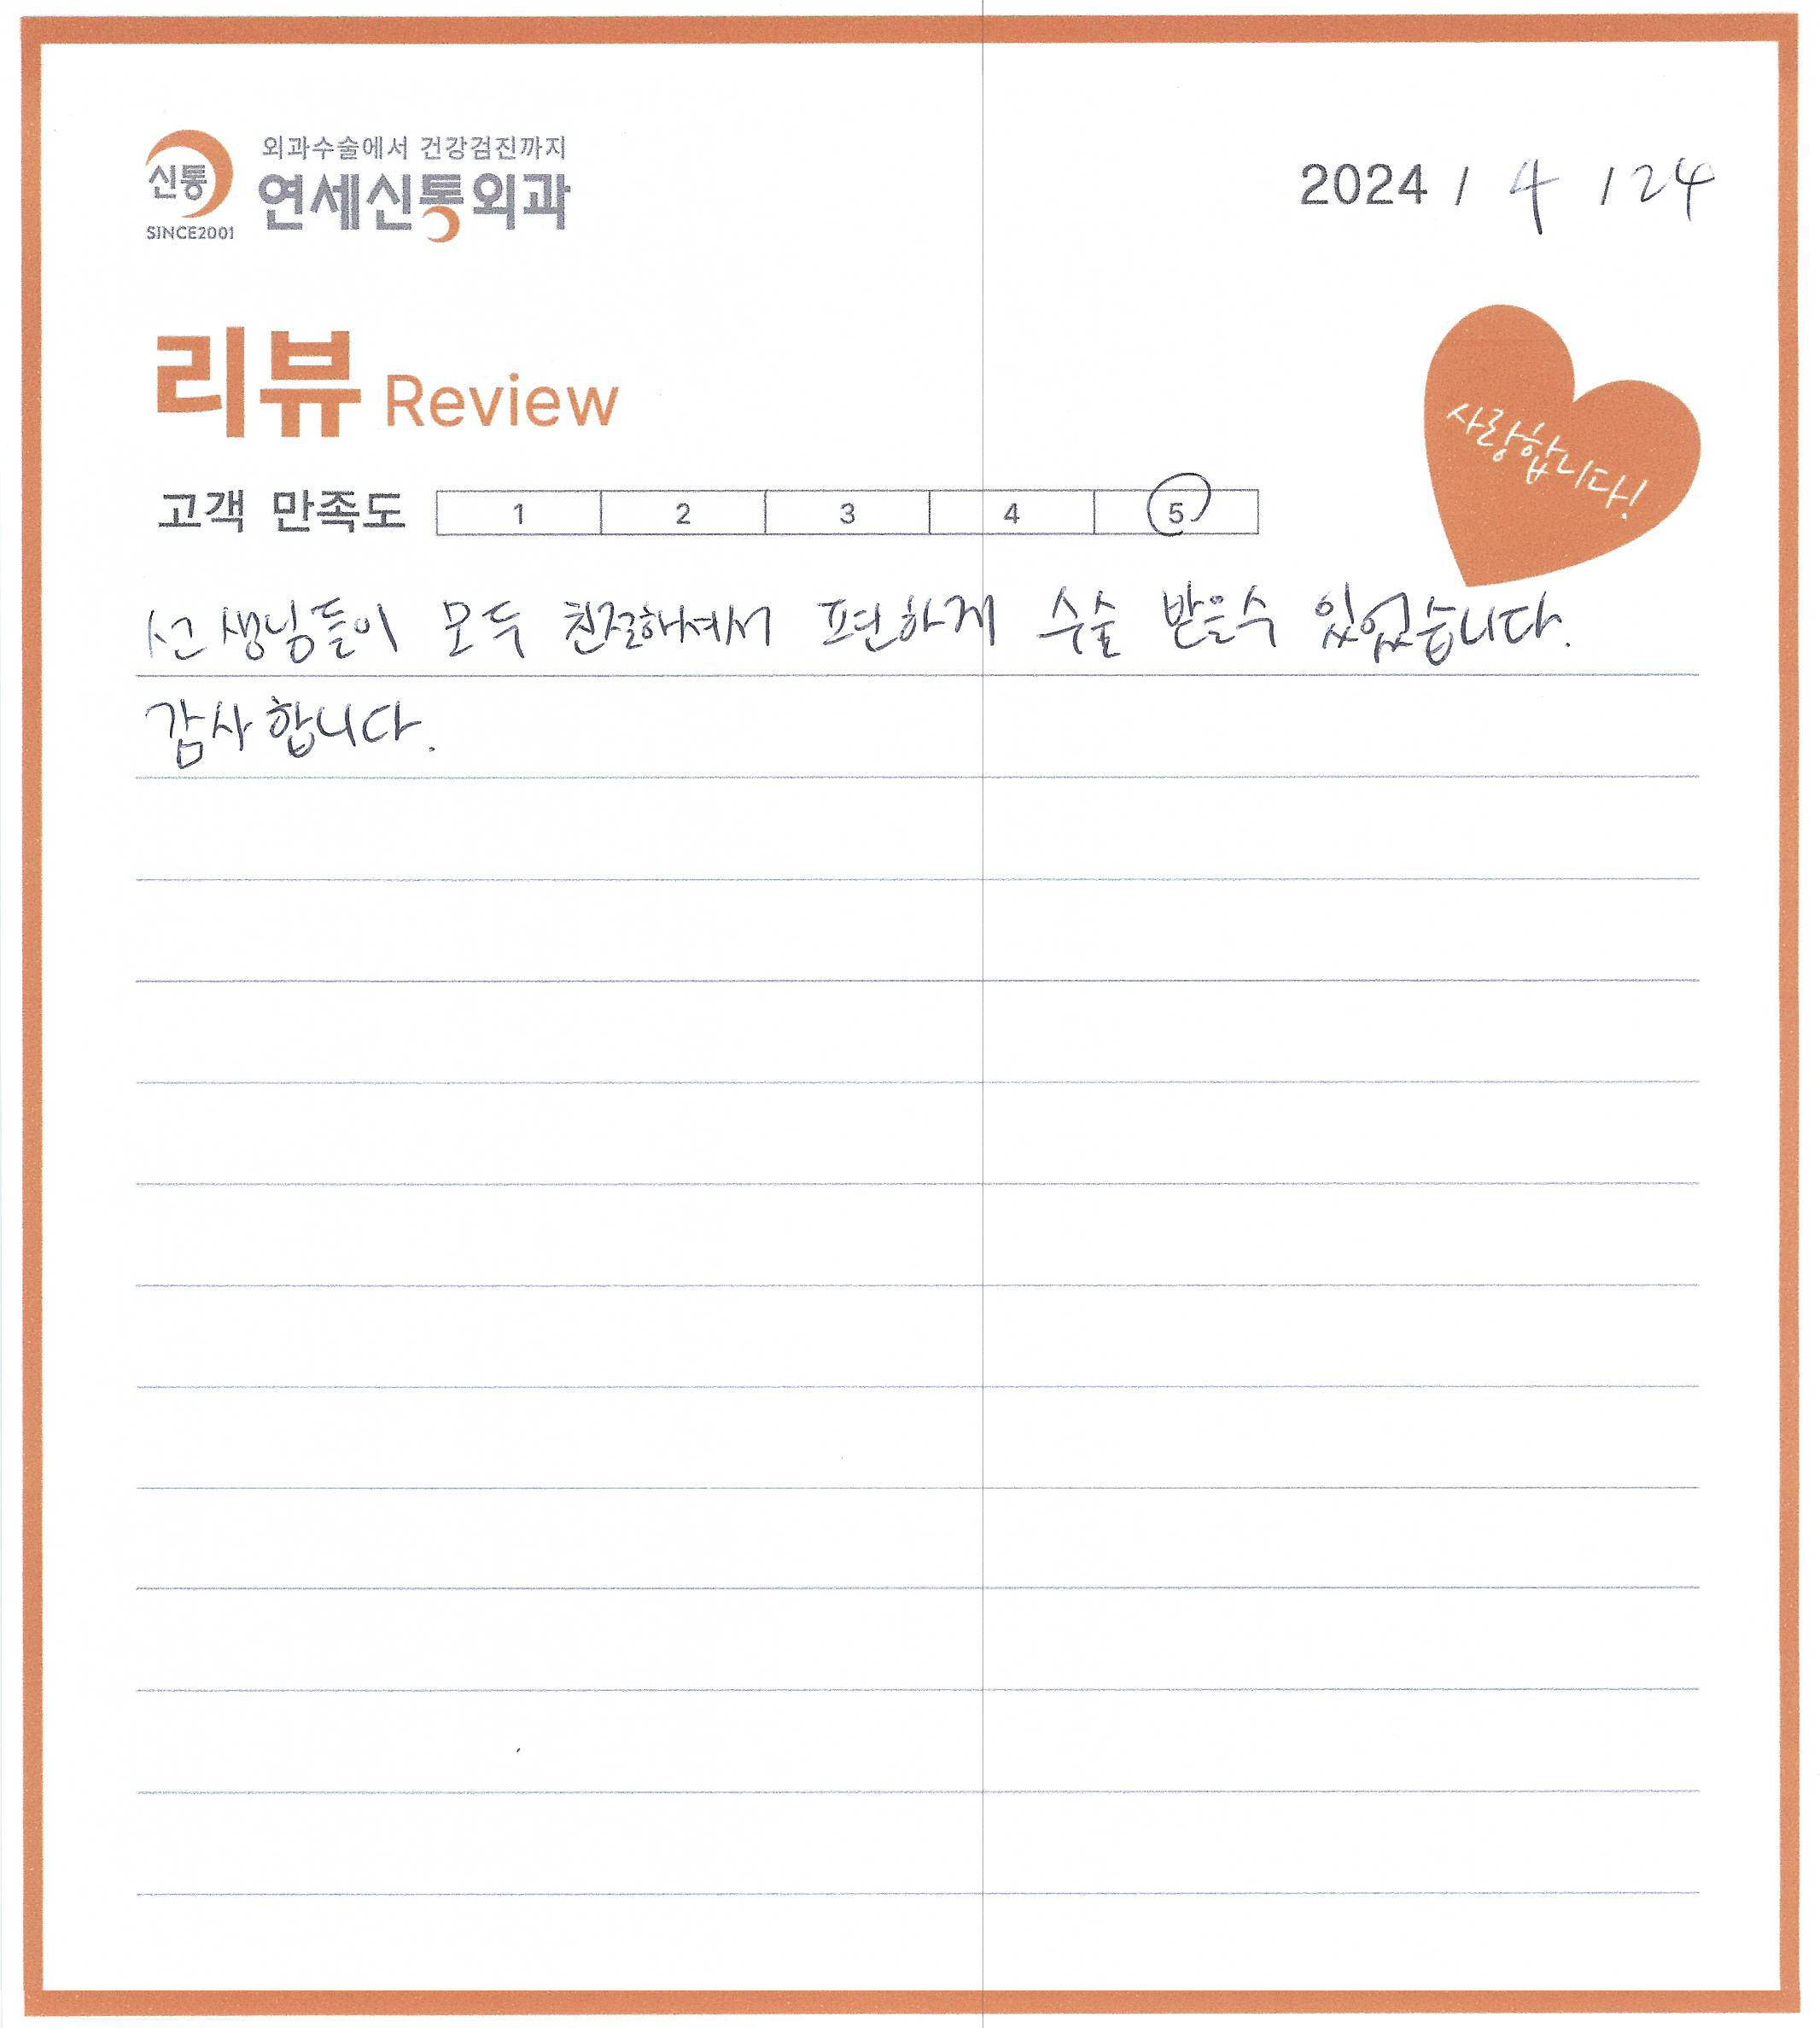 외과수술에서 건강검진까지
신통 연세신통외과
SINCE2001
2024 / 4 / 24
리뷰 Review
사랑합니다!
고객 만족도 1 2 3 4 5
선생님들이 모두 친절하셔서 편하게 수술 받을수 있었습니다.
감사합니다.